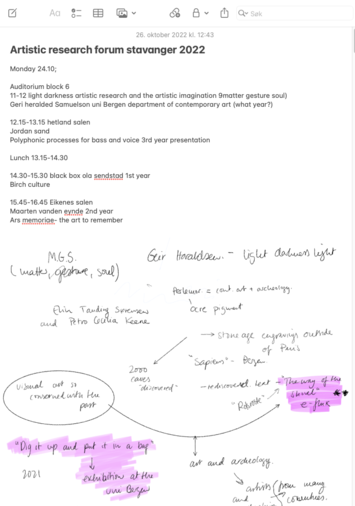 Aa
Søk
26. oktober 2022 kl. 12:43
Artistic research forum stavanger 2022
Monday 24.10;
Auditorium block 6
11-12 light darkness artistic research and the artistic imagination 9matter gesture soul)
Geri heralded Samuelson uni Bergen department of contemporary art (what year?)
12.15-13.15 hetland salen
Jordan sand
Polyphonic processes for bass and voice 3rd year presentation
Lunch 13.15-14.30
14.30-15.30 black box ola sendstad 1st year
Birch culture
15.45-16.45 Eikenes salen
Maarten vanden eynde 2nd year
Ars memoriae- the art to remember
M.G.S.
(matter, gesture, soul)
Geir Haraldsen. - light darkness light
= cont art + archeology.
ocre pigment
Elin Tanding Sørensen
and Petro Cecilia Keene
→ stone age engravings outside
of Paris
"Sapiens" -
2000
caves
"discovered"
- rediscovered text - "The way of the
shovel"
e-flux
visual art is
concerned with the
past
"Dig it up and put it in a bag"
2021
exhibition at the
uni Bergen
art and archeology.
artists (from many
and countries.